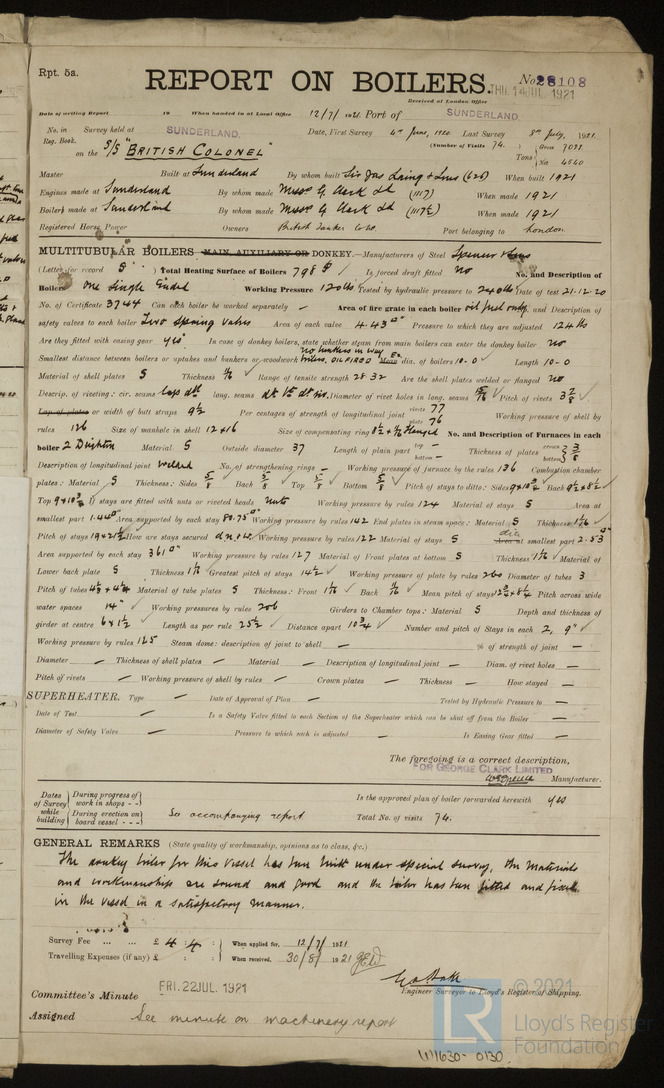 Rpt. 5a.
REPORT ON BOILERS.
No. 28108
THU. 14 JUL. 1921
Received at London Office
Date of writing Report 19 When handed in at Local Office 12/7/1921 Port of SUNDERLAND.
No. in Survey held at SUNDERLAND. Date, First Survey 4th June, 1920 Last Survey 8th July, 1921
Reg. Book.
(Number of Visits 74.)
on the S/S "BRITISH COLONEL" Tons Gross 7031 Net 4540
Master Built at Sunderland By whom built Sir Jas Laing & Sons (628) When built 1921
Engines made at Sunderland By whom made Messrs G. Clark Ld (1117) When made 1921
Boilers made at Sunderland By whom made Messrs G. Clark Ld (1117E) When made 1921
Registered Horse Power Owners British Tanker Co Ld. Port belonging to London.
MULTITUBULAR BOILERS MAIN, AUXILIARY OR DONKEY.—Manufacturers of Steel Spencer & Sons
(Letter for record S) Total Heating Surface of Boilers 798 Is forced draft fitted No No. and Description of
Boilers One Single Ended Working Pressure 120 lbs Tested by hydraulic pressure to 240 lbs Date of test 21-12-20
No. of Certificate 3744 Can each boiler be worked separately – Area of fire grate in each boiler oil fuel only. No. and Description of
safety valves to each boiler Two spring valves Area of each valve 4.43 □" Pressure to which they are adjusted 124 lbs
Are they fitted with easing gear yes In case of donkey boilers, state whether steam from main boilers can enter the donkey boiler no
Smallest distance between boilers or uptakes and bunkers or woodwork no bunkers in way boilers, OIL FIRED Mean dia. of boilers 10-0 Length 10-0
Material of shell plates S Thickness Range of tensile strength 28-32 Are the shell plates welded or flanged no
Descrip. of riveting: cir. seams lap dbl long. seams Diameter of rivet holes in long. seams Pitch of rivets
Lap of plates or width of butt straps 9½ Per centages of strength of longitudinal joint rivets 77 plate 76 Working pressure of shell by
rules 126 Size of manhole in shell 12 × 16 Size of compensating ring flanged No. and Description of Furnaces in each
boiler 2 Deighton Material S Outside diameter 37 Length of plain part top – bottom – Thickness of plates crown bottom 3/8
Description of longitudinal joint welded No. of strengthening rings – Working pressure of furnace by the rules 136 Combustion chamber
plates: Material S Thickness: Sides 5/8 Back 5/8 Top 5/8 Bottom 5/8 Pitch of stays to ditto: Sides 9 × 10¾ Back 9½ × 8½
Top 9 × 10¾ If stays are fitted with nuts or riveted heads nuts Working pressure by rules 124 Material of stays S Area at
smallest part 1.44 □" Area supported by each stay 80.75 □" Working pressure by rules 142 End plates in steam space: Material S Thickness
Pitch of stays 19 × 21½ How are stays secured d.n.&w. Working pressure by rules 122 Material of stays S dia Area at smallest part 2.53
Area supported by each stay 361 □" Working pressure by rules 127 Material of Front plates at bottom S Thickness Material of
Lower back plate S Thickness Greatest pitch of stays 14½ Working pressure of plate by rules 260 Diameter of tubes 3
Pitch of tubes Material of tube plates S Thickness: Front Back Mean pitch of stays Pitch across wide
water spaces 14" Working pressures by rules 206 Girders to Chamber tops: Material S Depth and thickness of
girder at centre 6 × 1½ Length as per rule 25½ Distance apart 10¾ Number and pitch of Stays in each 2, 9"
Working pressure by rules 125 Steam dome: description of joint to shell – % of strength of joint –
Diameter – Thickness of shell plates – Material – Description of longitudinal joint – Diam. of rivet holes –
Pitch of rivets – Working pressure of shell by rules – Crown plates – Thickness – How stayed –
SUPERHEATER. Type – Date of Approval of Plan – Tested by Hydraulic Pressure to –
Date of Test – Is a Safety Valve fitted to each Section of the Superheater which can be shut off from the Boiler –
Diameter of Safety Valve – Pressure to which each is adjusted – Is Easing Gear fitted –
The foregoing is a correct description,
FOR GEORGE CLARK LIMITED
Manufacturer.
Dates of Survey while building During progress of work in shops - - Is the approved plan of boiler forwarded herewith yes
During erection on board vessel - - - See accompanying report Total No. of visits 74.
GENERAL REMARKS (State quality of workmanship, opinions as to class, &c.)
The donkey boiler for this vessel has been built under special survey, the materials
and workmanship are sound and good and the boiler has been fitted and fixed
in the vessel in a satisfactory manner.
Survey Fee ... ... £ 4 : 4 : When applied for, 12/7/1921
Travelling Expenses (if any) £ : : When received, 30/8/1921
Engineer Surveyor to Lloyd's Register of Shipping.
Committee's Minute FRI. 22 JUL. 1921
Assigned See minute on machinery report
© 2021
LR
Lloyd's Register
Foundation
W1630-0130